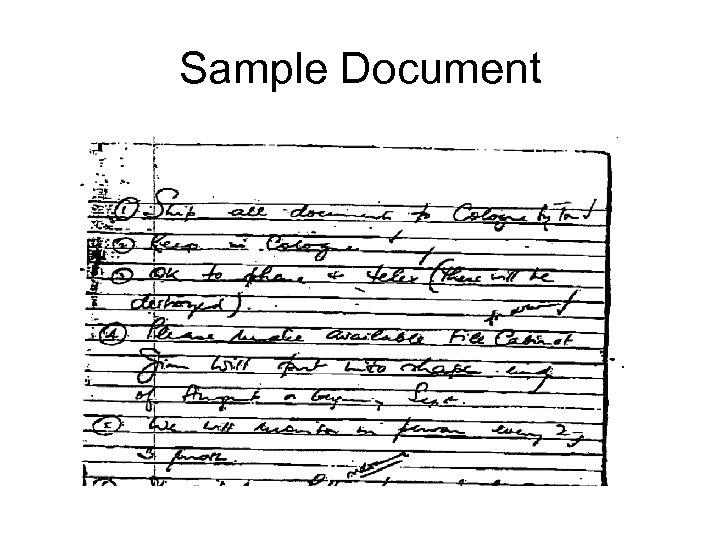 Sample Document
① Ship all documents to Cologne by Tom
② Keep in Cologne
③ OK to phone & telex (these will be
destroyed).
④ Please make available File Cabinet
Jim will put into shape end
of August or beginning Sept.
⑤ We will monitor in person every 2-
3 mos.